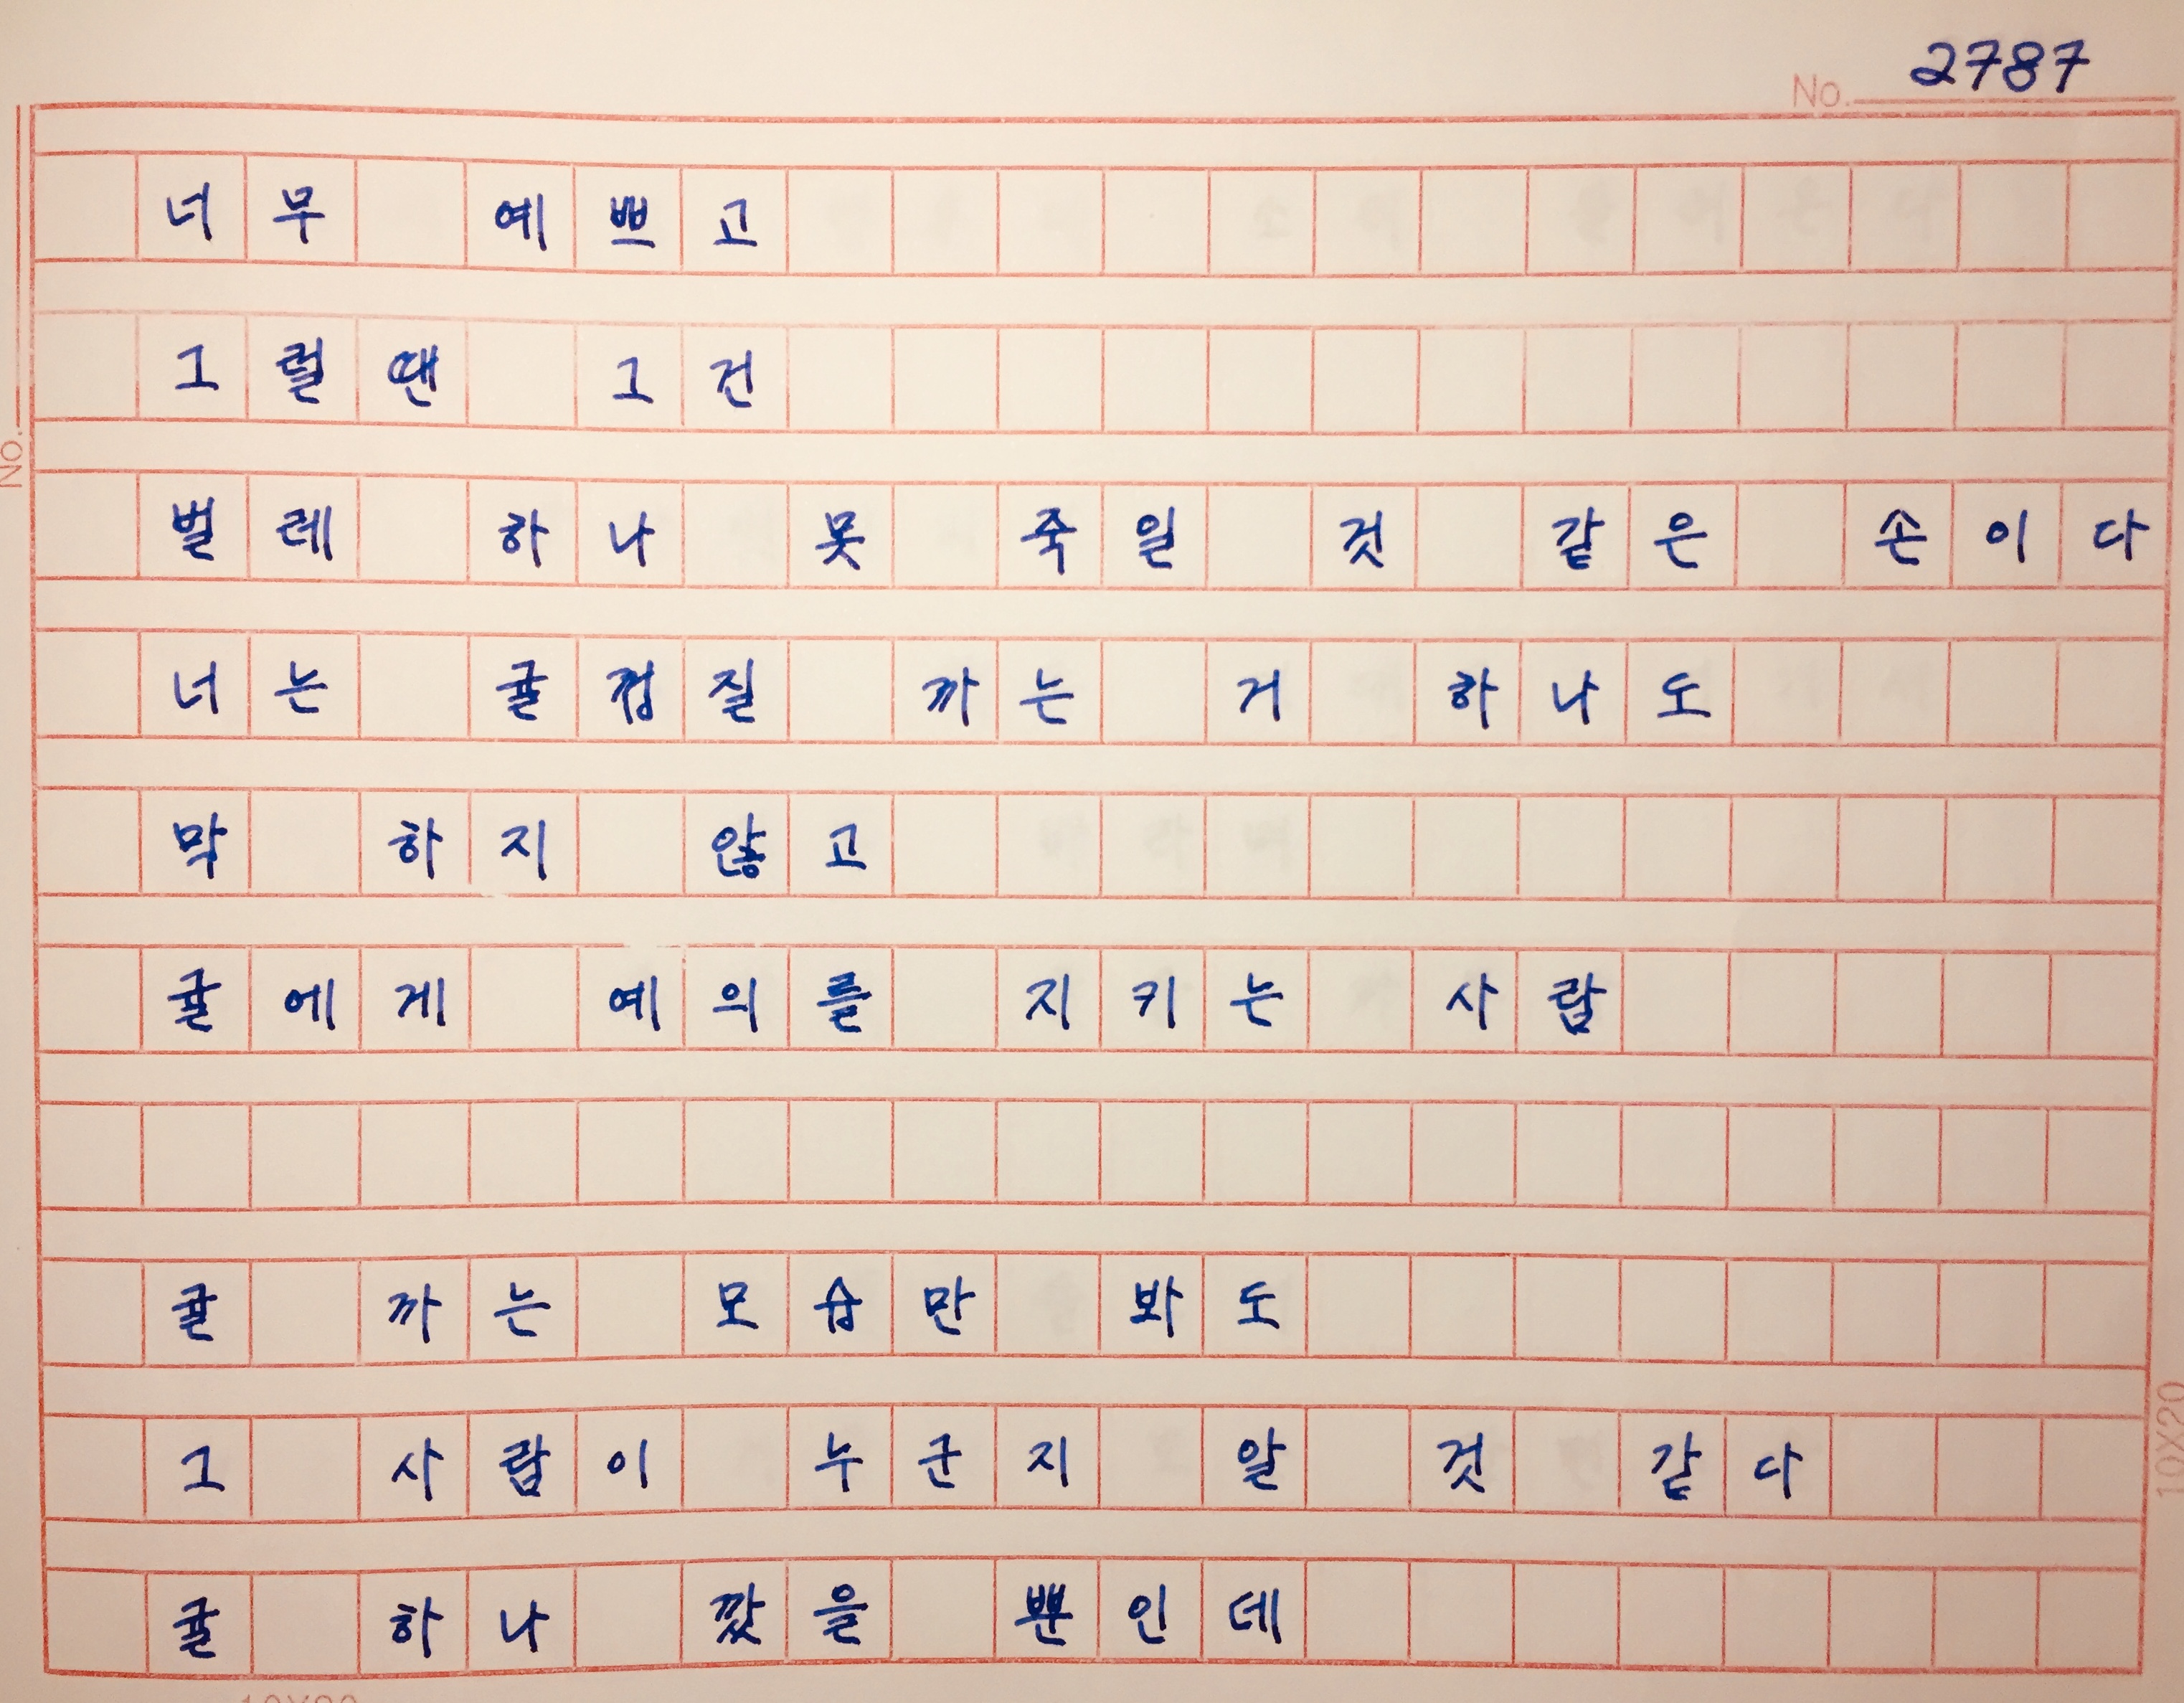 No. 2787
너무 예쁘고
그럴땐 그건
No.
벌레 하나 못 죽일 것 같은 손이다
너는 귤껍질 까는 거 하나도
막 하지 않고
귤에게 예의를 지키는 사람
귤 까는 모습만 봐도
그 사람이 누군지 알 것 같다
10X20
귤 하나 깠을 뿐인데
10X20